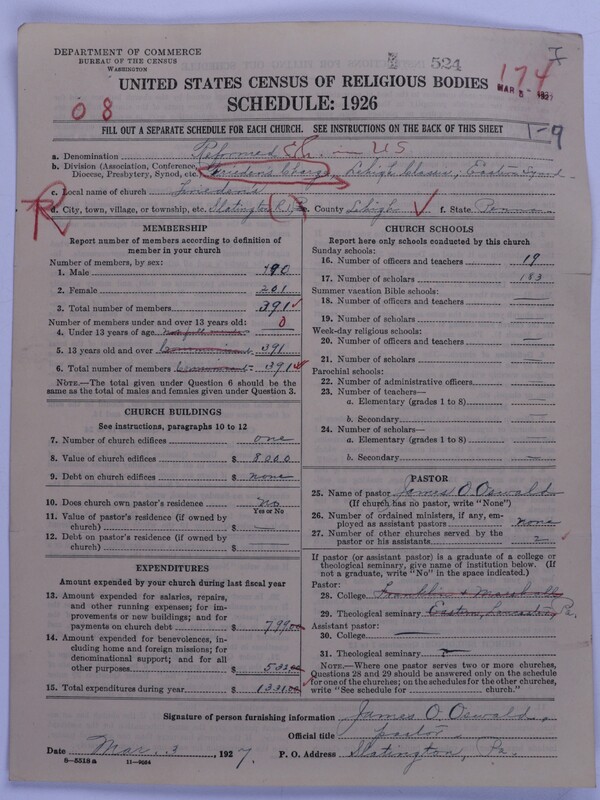 DEPARTMENT OF COMMERCE
BUREAU OF THE CENSUS
WASHINGTON
524
174
MAR 5 1927
UNITED STATES CENSUS OF RELIGIOUS BODIES
SCHEDULE: 1926
0 8
FILL OUT A SEPARATE SCHEDULE FOR EACH CHURCH. SEE INSTRUCTIONS ON THE BACK OF THIS SHEET
1-9
a. Denomination Reformed Ch. in US
b. Division (Association, Conference, Diocese, Presbytery, Synod, etc.) Friedens Charge, Lehigh Classis, Eastern Synod
c. Local name of church Friedens
R
d. City, town, village, or township, etc. Slatington R.1, Pa. e. County Lehigh f. State Penna.
MEMBERSHIP
Report number of members according to definition of
member in your church
Number of members, by sex:
1. Male 190
2. Female 201
3. Total number of members 391
Number of members under and over 13 years old:
4. Under 13 years of age 0
5. 13 years old and over Communicant 391
6. Total number of members Communicant 391
NOTE.—The total given under Question 6 should be the
same as the total of males and females given under Question 3.
CHURCH BUILDINGS
See instructions, paragraphs 10 to 12
7. Number of church edifices one
8. Value of church edifices $ 8000
9. Debt on church edifices $ none
10. Does church own pastor's residence no
Yes or No
11. Value of pastor's residence (if owned by
church) $ —
12. Debt on pastor's residence (if owned by
church) $ —
EXPENDITURES
Amount expended by your church during last fiscal year
13. Amount expended for salaries, repairs,
and other running expenses; for im-
provements or new buildings; and for
payments on church debt $ 799.00
14. Amount expended for benevolences,
including home and foreign missions; for
denominational support; and for all
other purposes $ 532.00
15. Total expenditures during year $ 1331.00
CHURCH SCHOOLS
Report here only schools conducted by this church
Sunday schools:
16. Number of officers and teachers 19
17. Number of scholars 183
Summer vacation Bible schools:
18. Number of officers and teachers —
19. Number of scholars —
Week-day religious schools:
20. Number of officers and teachers —
21. Number of scholars —
Parochial schools:
22. Number of administrative officers —
23. Number of teachers—
a. Elementary (grades 1 to 8) —
b. Secondary —
24. Number of scholars—
a. Elementary (grades 1 to 8) —
b. Secondary —
PASTOR
25. Name of pastor James O. Oswald
(If church has no pastor, write "None")
26. Number of ordained ministers, if any, em-
ployed as assistant pastors none
27. Number of other churches served by the
pastor or his assistants 2
If pastor (or assistant pastor) is a graduate of a college or
theological seminary, give name of institution below. (If
not a graduate, write "No" in the space indicated.)
Pastor:
28. College Franklin & Marshall
29. Theological seminary Eastern, Lancaster, Pa.
Assistant pastor:
30. College —
31. Theological seminary —
NOTE.—Where one pastor serves two or more churches,
Questions 28 and 29 should be answered only on the schedule
for one of the churches; on the schedules for the other churches,
write "See schedule for ________ church."
Signature of person furnishing information James O. Oswald
Official title Pastor
Date Mar. 3, 1927. P. O. Address Slatington, Pa.
6—5518 a 11—9664